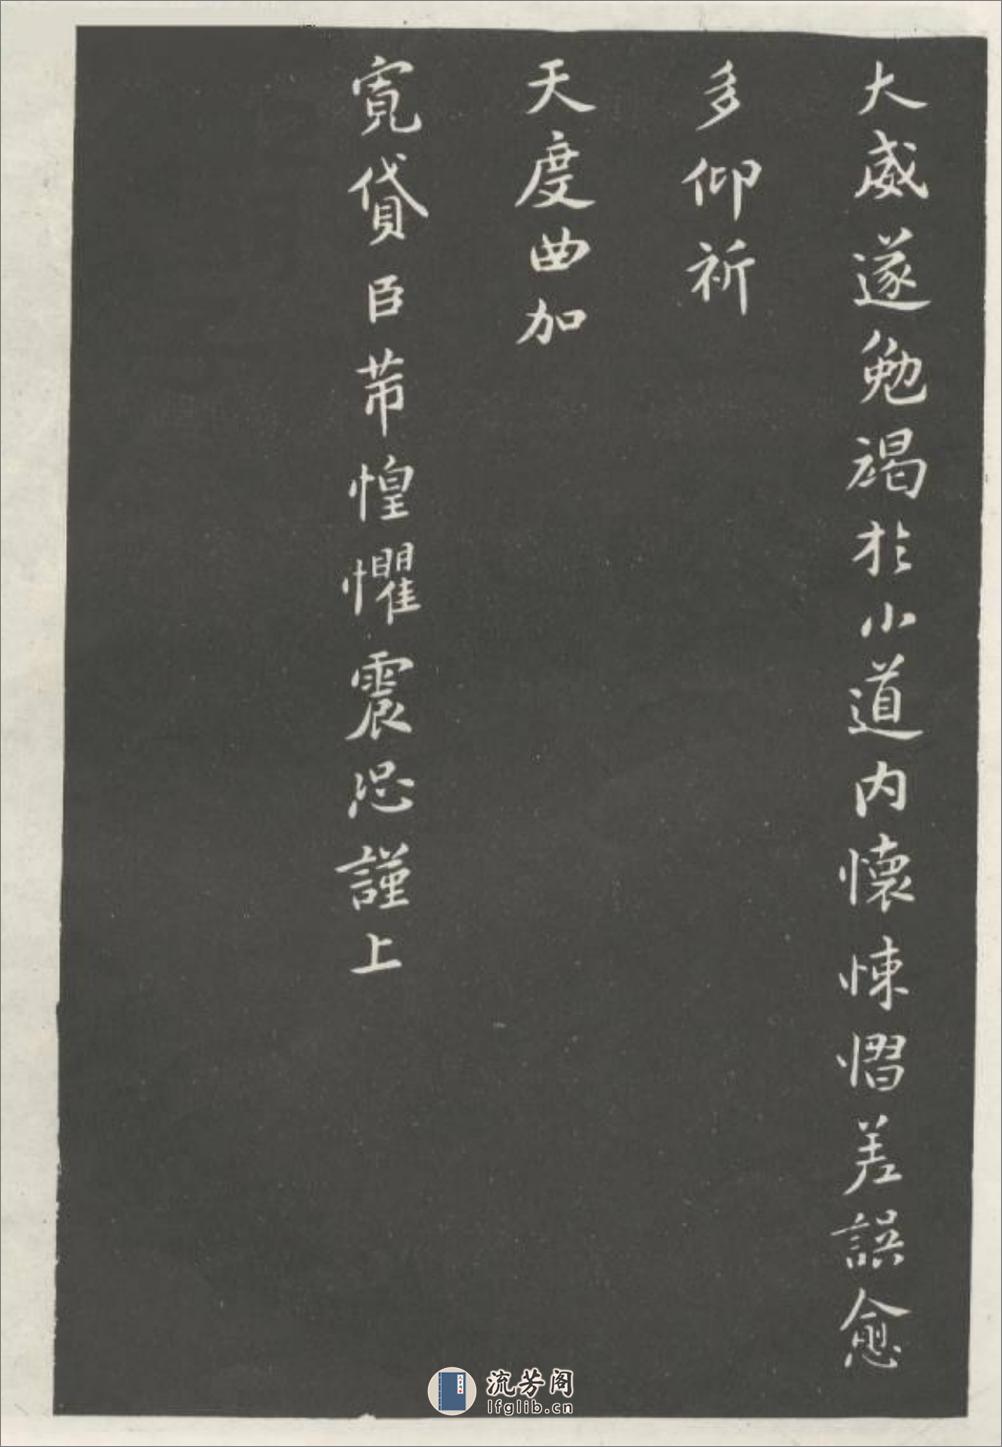 大威遂勉竭於小道内懷悚慴差誤愈
多仰祈
天度曲加
寬貸臣芾惶懼震恐謹上
流芳阁
lfglib.cn